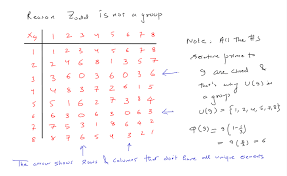 Reason Zmod is not a group
X9 1 2 3 4 5 6 7 8
1 1 2 3 4 5 6 7 8
2 2 4 6 8 1 3 5 7
3 3 6 0 3 6 0 3 6
4 4 8 3 7 2 6 1 5
5 5 1 6 2 7 3 8 4
6 6 3 0 6 3 0 6 3
7 7 5 3 1 8 6 4 2
8 8 7 6 5 4 3 2 1
The arrow shows Rows & Columns that don't have all unique elements
Note: All the #s
relative prime to
9 are closed &
that's why U(9) is
a group
U(9) = {1, 2, 4, 5, 7, 8}
φ(9) = 9(1-1/3)
= 9(2/3) = 6